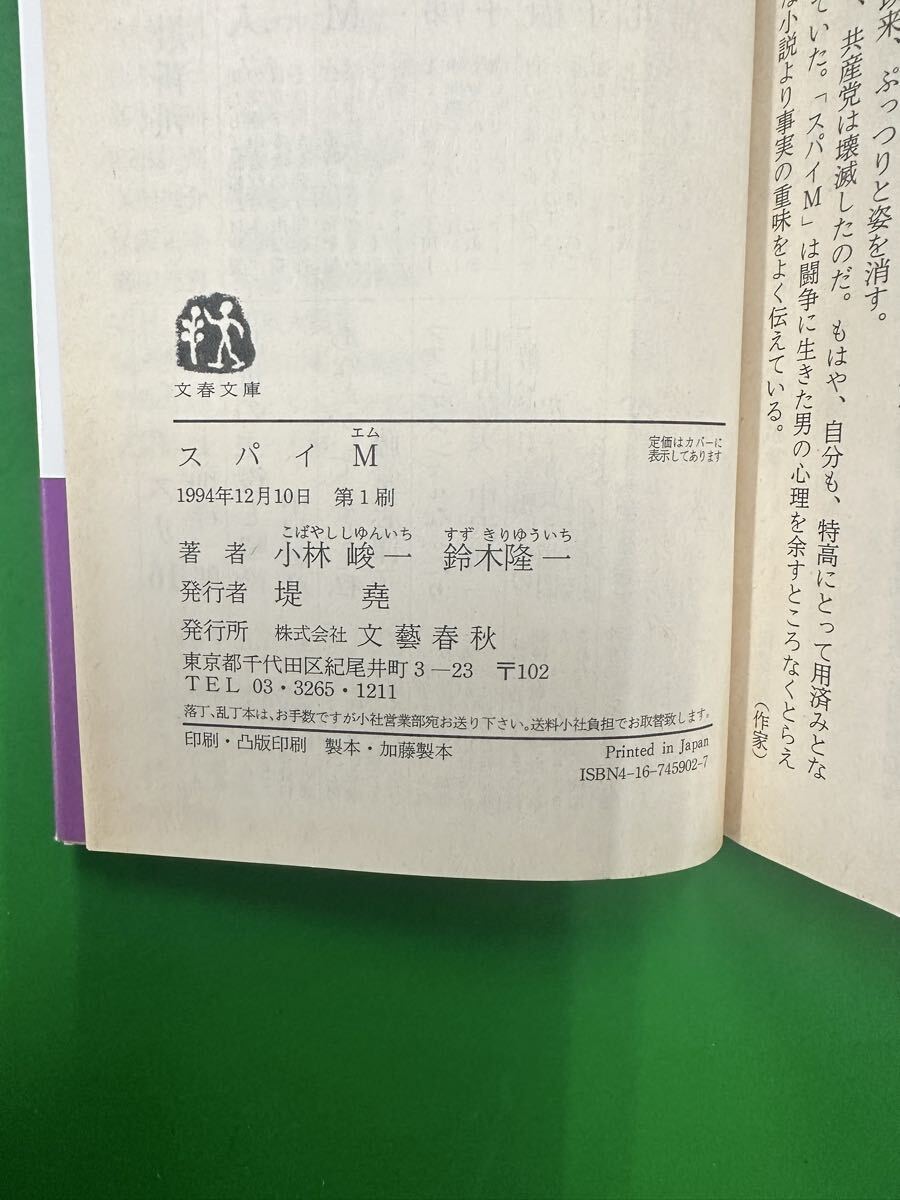 以来、ぷっつりと姿を消す。
、共産党は壊滅したのだ。もはや、自分も、特高にとって用済みとな
ていた。「スパイM」は闘争に生きた男の心理を余すところなくとらえ
は小説より事実の重味をよく伝えている。
（作家）
文春文庫
スパイM
エム
定価はカバーに
表示してあります
1994年12月10日 第1刷
こばやししゆんいち すずきりゆういち
著者 小林峻一 鈴木隆一
発行者 堤堯
発行所 株式会社 文藝春秋
東京都千代田区紀尾井町3―23 〒102
TEL 03・3265・1211
落丁、乱丁本は、お手数ですが小社営業部宛お送り下さい。送料小社負担でお取替致します。
印刷・凸版印刷 製本・加藤製本
Printed in Japan
ISBN4-16-745902-7